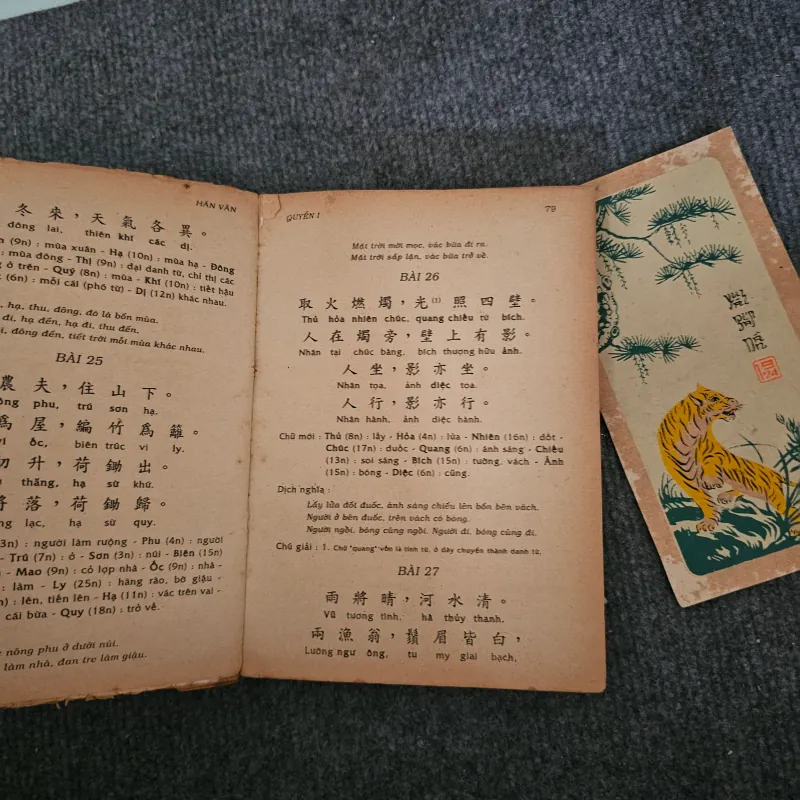 HÁN VĂN
冬來，天氣各異。
đông lai, thiên khí các dị.
(9n) : mùa xuân - Hạ (10n) : mùa hạ - Đông
: mùa đông - Thị (9n) : đại danh từ, chỉ thị các
ở trên - Quý (8n) : mùa - Khí (10n) : tiết hậu
(6n) : mỗi cái (phó từ) - Dị (12n) khác nhau.
, hạ, thu, đông, đó là bốn mùa.
đi, hạ đến, hạ đi, thu đến.
, đông đến, tiết trời mỗi mùa khác nhau.
BÀI 25
農夫，住山下。
phu, trú sơn hạ.
爲屋，編竹爲籬。
vi ốc, biên trúc vi ly.
初升，荷鋤出。
thăng, hạ sừ khứ.
將落，荷鋤歸。
lạc, hạ sừ quy.
(3n) : người làm ruộng - Phu (4n) : người
- Trú (7n) : ở - Sơn (3n) : núi - Biên (15n)
- Mao (9n) : cỏ lợp nhà - Ốc (9n) : nhà -
: làm - Ly (25n) : hàng rào, bờ giậu -
: lên, tiến lên - Hạ (11n) : vác trên vai -
cái bừa - Quy (18n) : trở về.
nông phu ở dưới núi.
làm nhà, đan tre làm giậu.
QUYỂN I
79
Mặt trời mới mọc, vác bừa đi ra.
Mặt trời sắp lặn, vác bừa trở về.
BÀI 26
取火燃燭，光(1)照四壁。
Thủ hỏa nhiên chúc, quang chiếu tứ bích.
人在燭旁，壁上有影。
Nhân tại chúc bàng, bích thượng hữu ảnh.
人坐，影亦坐。
Nhân tọa, ảnh diệc tọa.
人行，影亦行。
Nhân hành, ảnh diệc hành.
Chữ mới : Thủ (8n) : lấy - Hỏa (4n) : lửa - Nhiên (16n) : đốt -
Chúc (17n) : đuốc - Quang (6n) : ánh sáng - Chiếu
(13n) : soi sáng - Bích (15n) : tường, vách - Ảnh
(15n) : bóng - Diệc (6n) : cũng.
Dịch nghĩa :
Lấy lửa đốt đuốc, ánh sáng chiếu lên bốn bên vách.
Người ở bên đuốc, trên vách có bóng.
Người ngồi, bóng cũng ngồi. Người đi, bóng cũng đi.
Chú giải : 1. Chữ "quang" vốn là tính từ, ở đây chuyển thành danh từ.
BÀI 27
雨將晴，河水清。
Vũ tương tình, hà thủy thanh.
兩漁翁，鬚眉皆白，
Lưỡng ngư ông, tu my giai bạch,